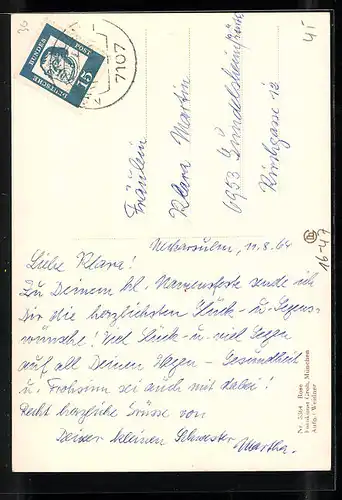 36
4I
DEUTSCHE
BUNDES
POST
15
7107
Fräulein
Klara Martin
6953 Gundelsheim
Kirchgasse 12
Neckarsulm, 11.8.64
Liebe Klara!
Zu Deinem hl. Namensfeste sende ich
Dir die herzlichsten Glück- u. Segens-
wünsche! Viel Glück u. viel Segen
auf all Deinen Wegen - Gesundheit
u. Frohsinn sei auch mit dabei!
Recht herzliche Grüsse von
Deiner kleinen Schwester
Martha.
16-47
Nr. 5364 Rose
Kunstverlag Groh, München
Aufn.: Weidner